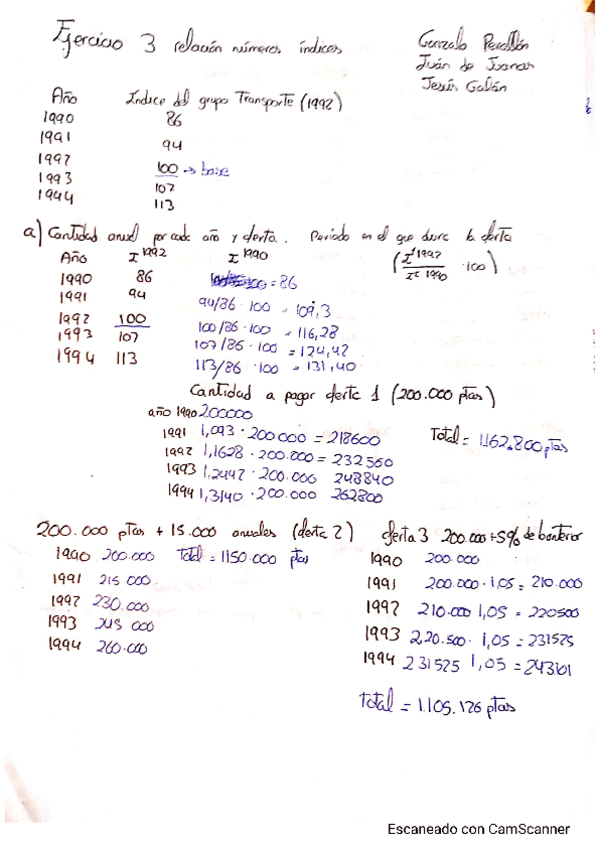 Ejercicio 3 relación números índices
Gonzalo Perallón
Juán de Juanas
Jesús Galán
Año Indice del grupo Transporte (1992)
1990 86
1991 94
1992 100 → base
1993 107
1994 113
a) Cantidad anual por cada año y oferta. Periodo en el que dure la oferta
Año I 1992 I 1990 (I 1992 / I 1990 · 100)
1990 86 = 86
1991 94 94/86 · 100 = 109,3
1992 100 100/86 · 100 = 116,28
1993 107 107/86 · 100 = 124,42
1994 113 113/86 · 100 = 131,40
Cantidad a pagar oferta 1 (200.000 ptas)
año 1990 200000
1991 1,093 · 200 000 = 218600
1992 1,1628 · 200.000 = 232560
1993 1,2442 · 200.000 248840
1994 1,3140 · 200.000 262800
Total = 1.162.800 ptas
200.000 ptas + 15.000 anuales (oferta 2)
1990 200.000 Total = 1150.000 ptas
1991 215 000
1992 230.000
1993 245 000
1994 260.000
oferta 3 200.000 + 5% de
1990 200.000
1991 200.000 · 1,05 = 210.000
1992 210.000 1,05 = 220500
1993 220.500 · 1,05 = 231525
1994 231525 1,05 = 243101
Total = 1.105.126 ptas
Escaneado con CamScanner